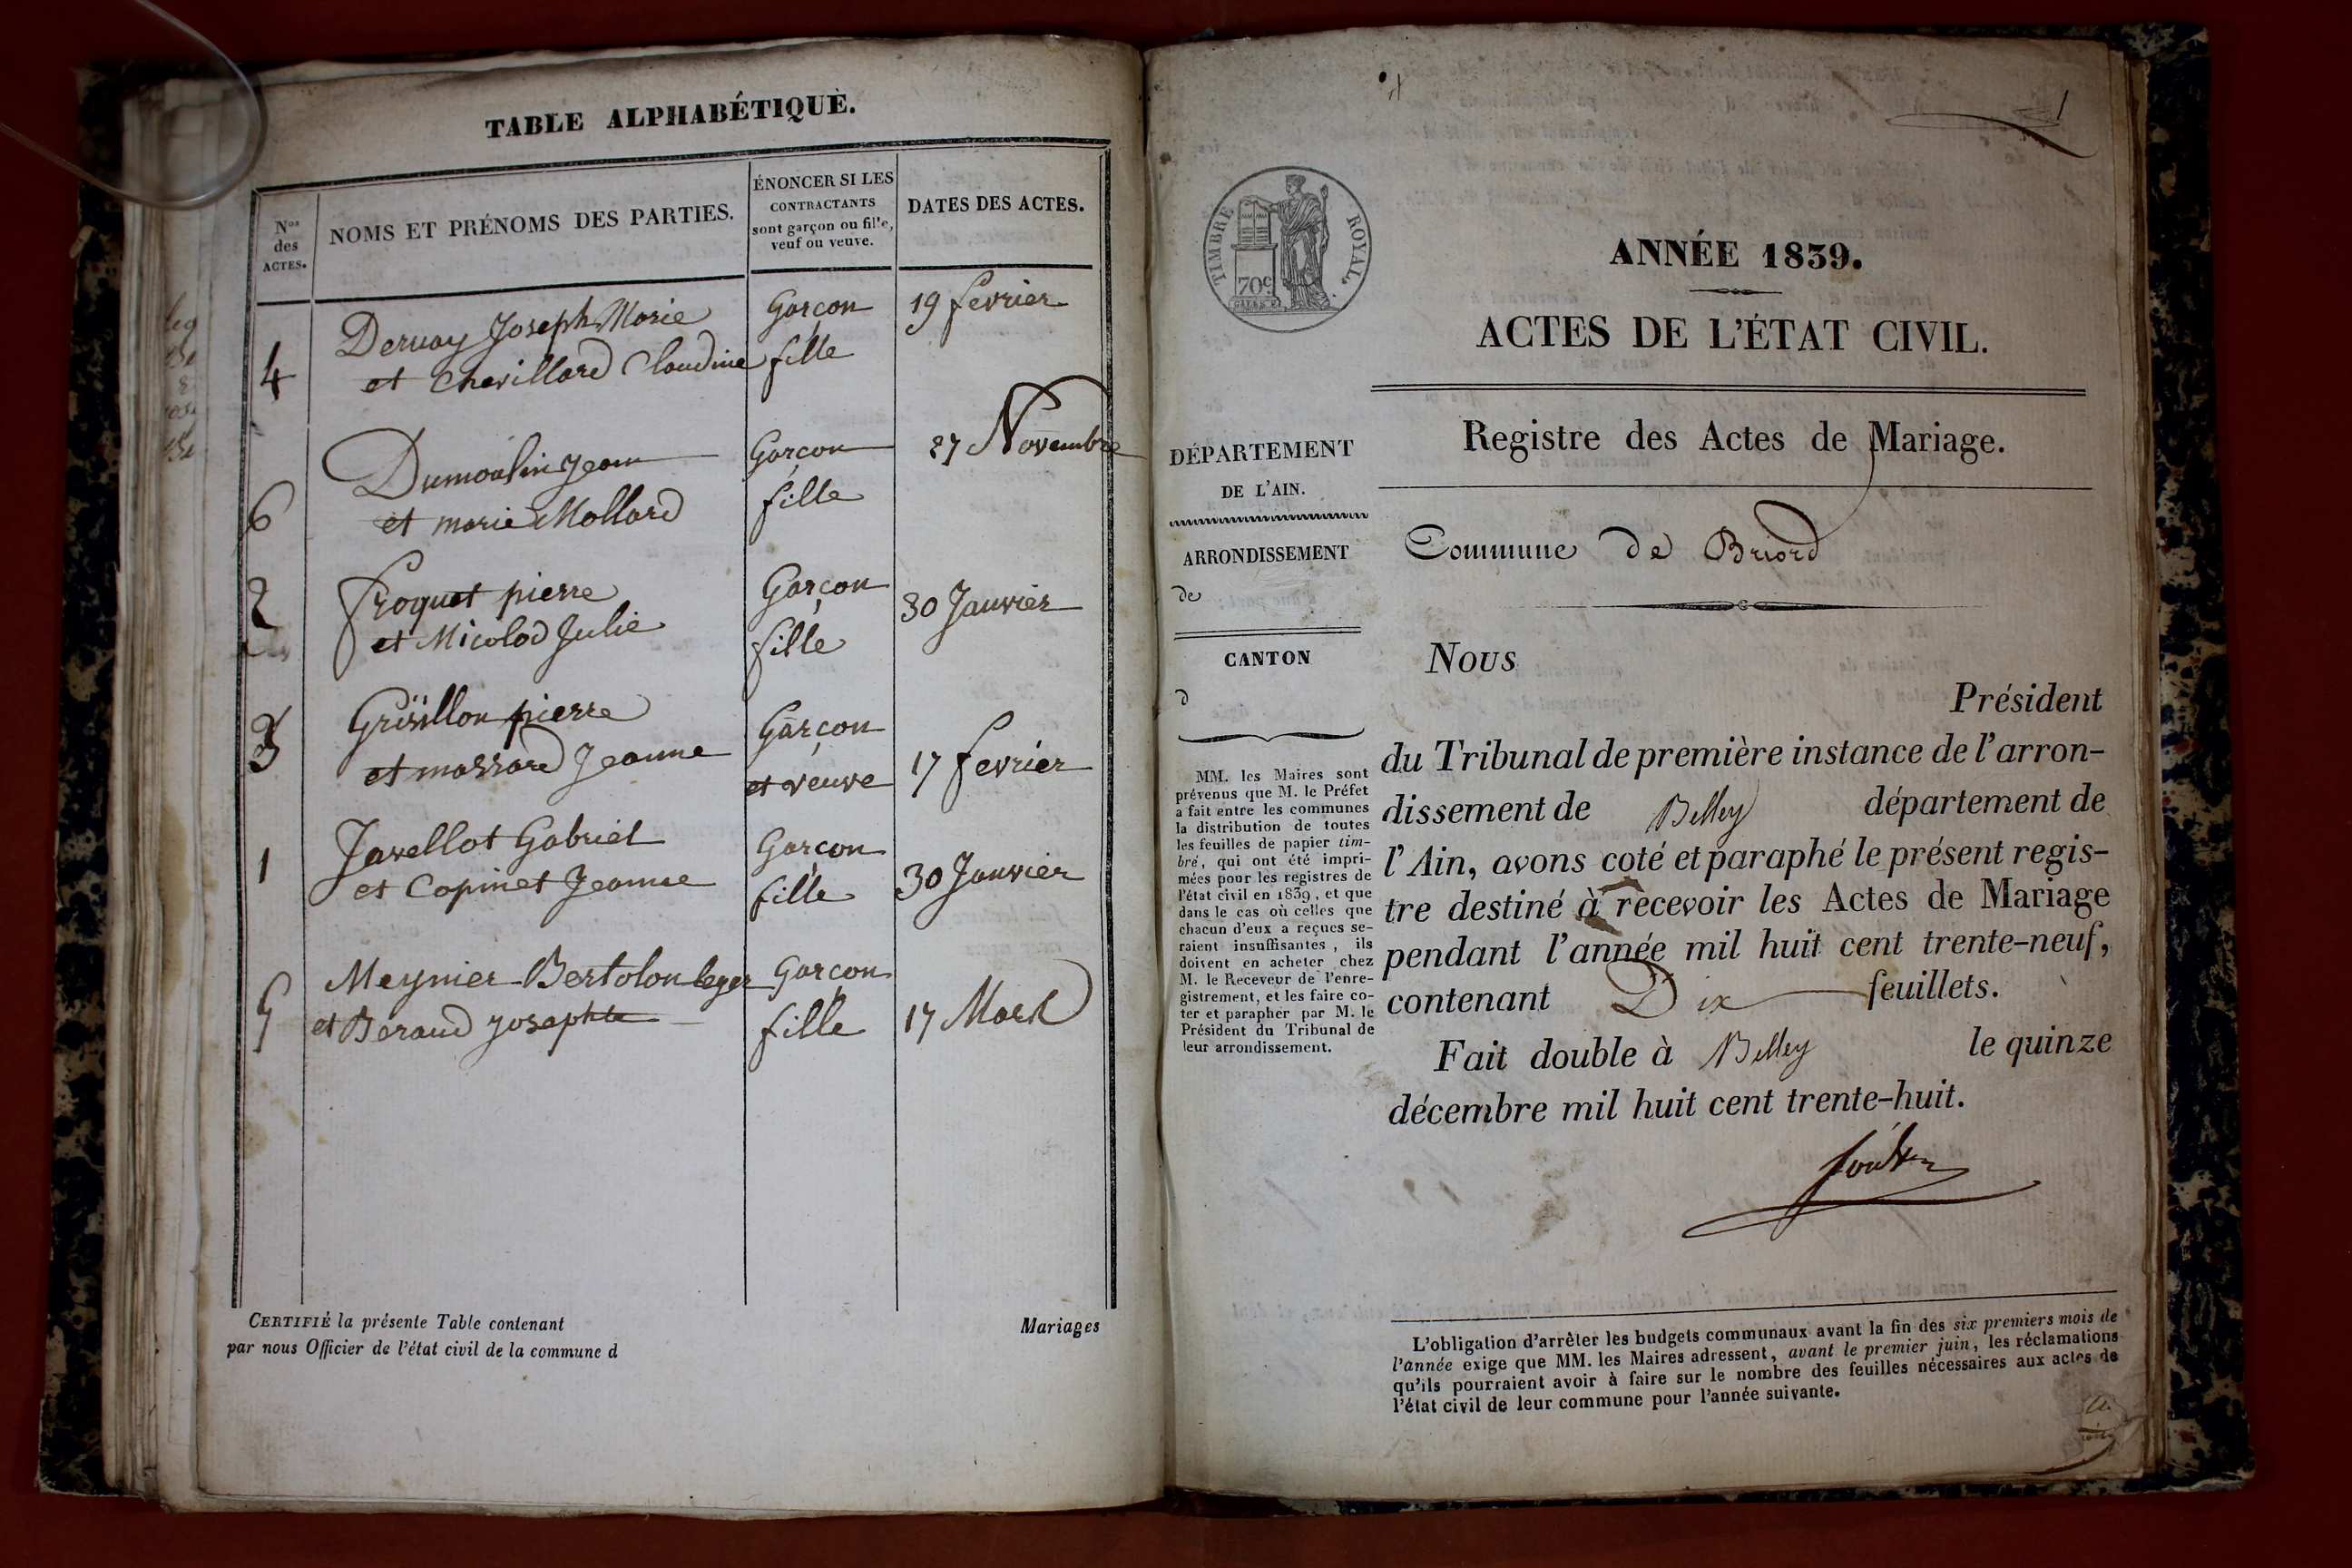 TABLE ALPHABÉTIQUE.
Nos des ACTES.
NOMS ET PRÉNOMS DES PARTIES.
ÉNONCER SI LES
CONTRACTANTS
sont garçon ou fille,
veuf ou veuve.
DATES DES ACTES.
Dervay Joseph Marie Garçon 19 fevrier
4 et Chevillard Claudine fille
Dumoulin Jean Garçon 27 Novembre
6 et marie Mollard fille
2 froquet pierre Garçon 30 Janvier
et Micolod Julie fille
3 Grisillon pierre Garçon
et massard Jeanne et veuve 17 fevrier
1 Javellot Gabriel Garçon 30 Janvier
et Copinet Jeanne fille
Meynier Bertolon leger Garçon
5 et Beraud Josephte fille 17 Mars
CERTIFIÉ la présente Table contenant Mariages
par nous Officier de l'état civil de la commune d
1
TIMBRE ROYAL
70c
ANNÉE 1839.
ACTES DE L'ÉTAT CIVIL.
Registre des Actes de Mariage.
DÉPARTEMENT
DE L'AIN.
ARRONDISSEMENT
de
CANTON
d
MM. les Maires sont
prévenus que M. le Préfet
a fait entre les communes
la distribution de toutes
les feuilles de papier tim-
bré, qui ont été impri-
mées pour les registres de
l'état civil en 1839, et que
dans le cas où celles que
chacun d'eux a reçues se-
raient insuffisantes, ils
doivent en acheter chez
M. le Receveur de l'enre-
gistrement, et les faire co-
ter et parapher par M. le
Président du Tribunal de
leur arrondissement.
Commune de Briord
Nous
Président
du Tribunal de première instance de l'arron-
dissement de Belley département de
l'Ain, avons coté et paraphé le présent regis-
tre destiné à recevoir les Actes de Mariage
pendant l'année mil huit cent trente-neuf,
contenant Dix feuillets.
Fait double à Belley le quinze
décembre mil huit cent trente-huit.
L'obligation d'arrêter les budgets communaux avant la fin des six premiers mois de
l'année exige que MM. les Maires adressent, avant le premier juin, les réclamations
qu'ils pourraient avoir à faire sur le nombre des feuilles nécessaires aux actes de
l'état civil de leur commune pour l'année suivante.